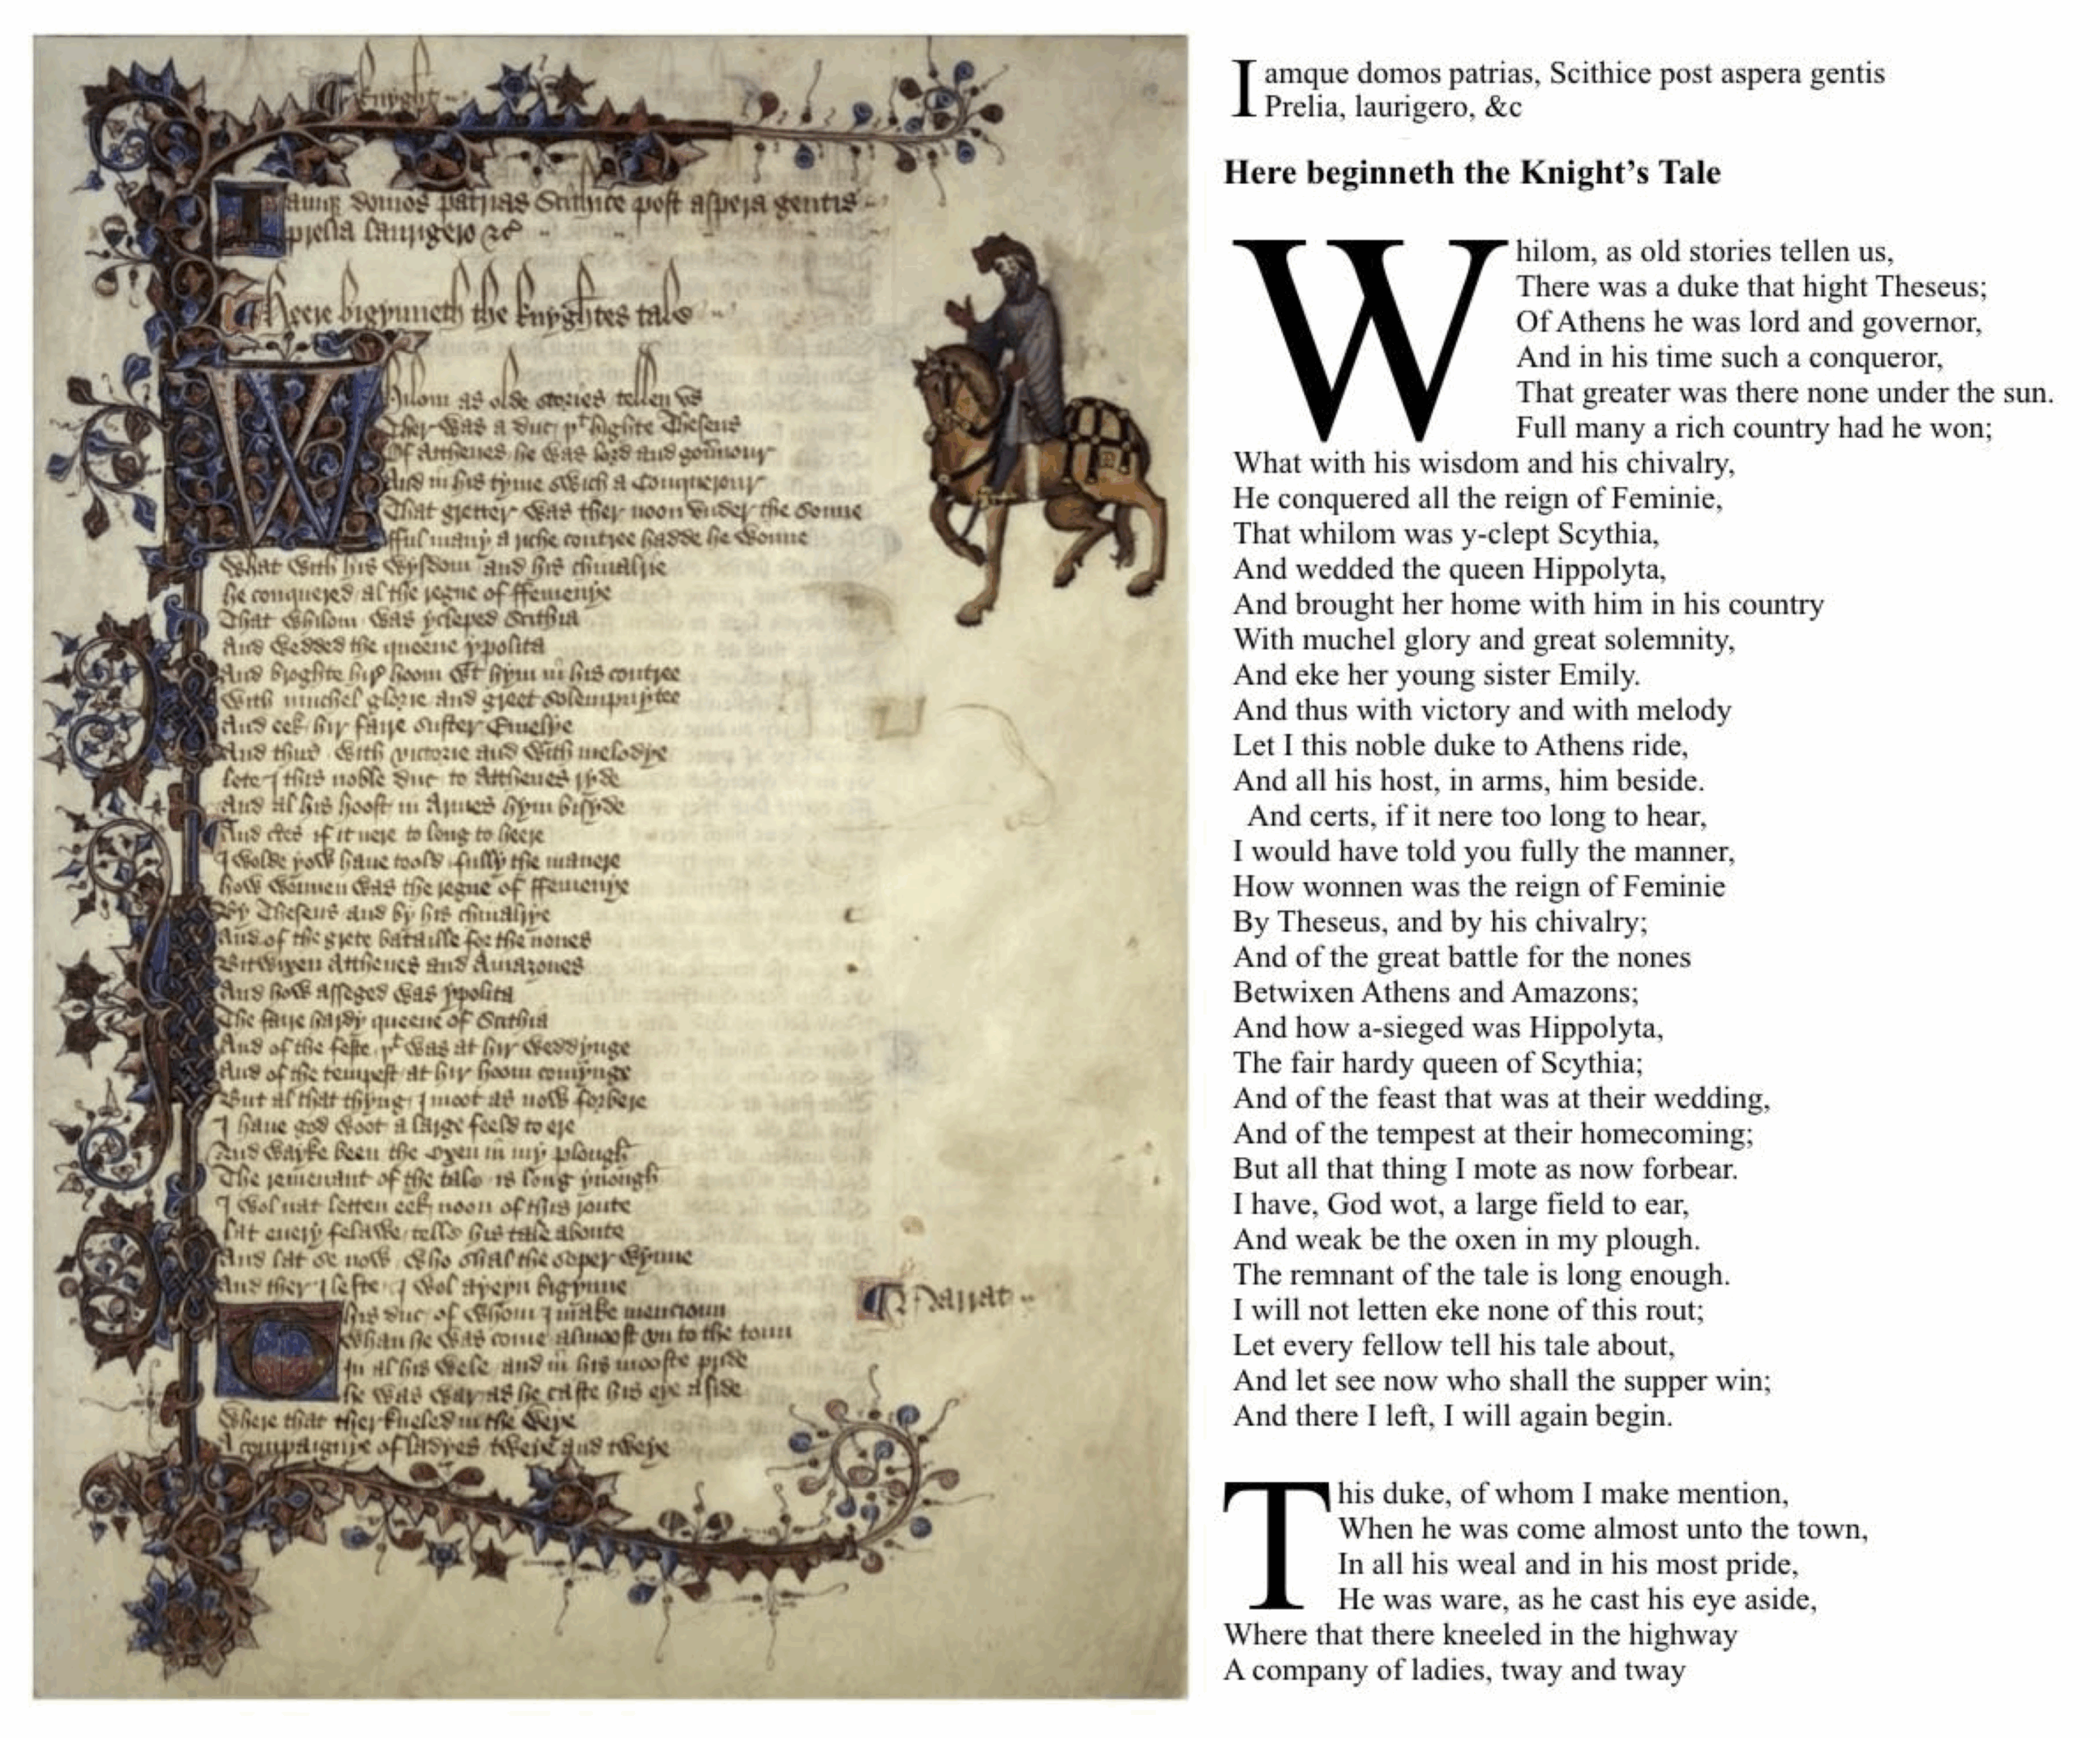 Knyght
Iamq domos patrias Scithice post aspera gentis
prelia laurigero &c
Heere bigynneth the knyghtes tale
Whilom as olde stories tellen vs
Ther was a duc þt highte Theseus
Of Atthenes he was lord and gouernour
And in his tyme swich a Conquerour
That gretter was ther noon vnder the sonne
fful many a riche contree hadde he wonne
What with his wysdom and his chiualrie
he conquered al the regne of ffemenye
That whilom was ycleped Scithia
And wedded the queene ypolita
And broghte hir hoom wt hym in his contree
With muchel glorie and greet solempnytee
And eek hir faire suster Emelye
And thus with victorie and with melodye
lete I this noble duc to Atthenes ryde
And al his hoost in Armes hym bisyde
And certes if it nere to long to heere
I wolde yow haue toold fully the manere
how wonnen was the regne of ffemenye
By Theseus and by his chiualrye
And of the grete bataille for the nones
Bitwixen Atthenes and Amazones
And how asseged was ypolita
The faire hardy queene of Scithia
And of the feste þt was at hir weddynge
And of the tempest at hir hoom comynge
But al that thyng I moot as now forbere
I haue god woot a large feeld to ere
And wayke been the oxen in my plough
The remenant of the tale is long ynough
I wol nat letten eek noon of this route
lat euery felawe telle his tale aboute
And lat se now who shal the soper wynne
And ther I lefte I wol ayeyn bigynne
Narrat
This duc of whom I make mencioun
Whan he was come almoost vn to the toun
In al his wele and in his mooste pride
he was war as he caste his eye aside
Where that ther kneled in the weye
A compaignye of ladyes tweye and tweye
Iamque domos patrias, Scithice post aspera gentis
Prelia, laurigero, &c
Here beginneth the Knight’s Tale
Whilom, as old stories tellen us,
There was a duke that hight Theseus;
Of Athens he was lord and governor,
And in his time such a conqueror,
That greater was there none under the sun.
Full many a rich country had he won;
What with his wisdom and his chivalry,
He conquered all the reign of Feminie,
That whilom was y-clept Scythia,
And wedded the queen Hippolyta,
And brought her home with him in his country
With muchel glory and great solemnity,
And eke her young sister Emily.
And thus with victory and with melody
Let I this noble duke to Athens ride,
And all his host, in arms, him beside.
And certs, if it nere too long to hear,
I would have told you fully the manner,
How wonnen was the reign of Feminie
By Theseus, and by his chivalry;
And of the great battle for the nones
Betwixen Athens and Amazons;
And how a-sieged was Hippolyta,
The fair hardy queen of Scythia;
And of the feast that was at their wedding,
And of the tempest at their homecoming;
But all that thing I mote as now forbear.
I have, God wot, a large field to ear,
And weak be the oxen in my plough.
The remnant of the tale is long enough.
I will not letten eke none of this rout;
Let every fellow tell his tale about,
And let see now who shall the supper win;
And there I left, I will again begin.
This duke, of whom I make mention,
When he was come almost unto the town,
In all his weal and in his most pride,
He was ware, as he cast his eye aside,
Where that there kneeled in the highway
A company of ladies, tway and tway